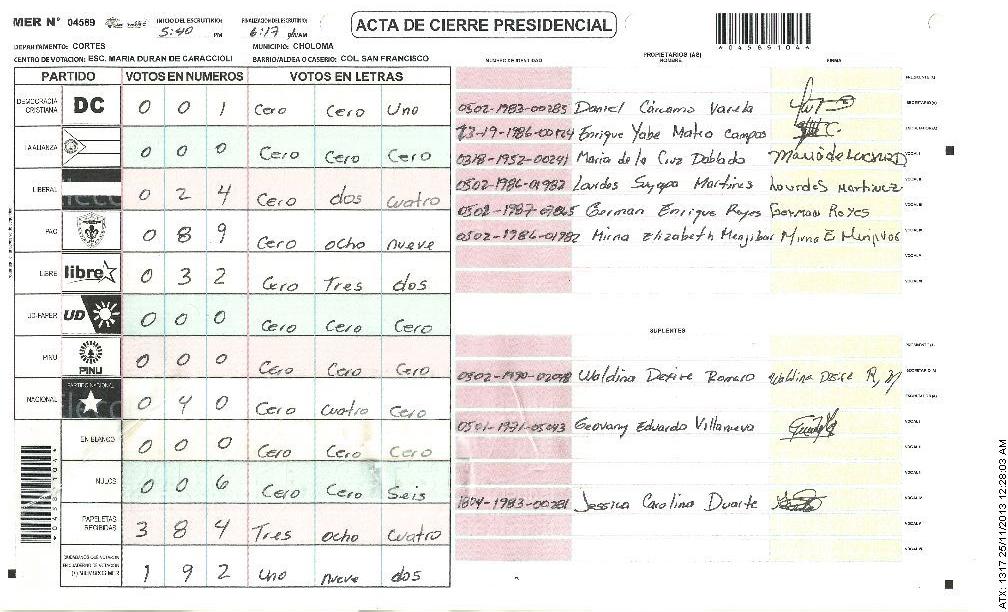 MER N° 04589 INICIO DEL ESCRUTINIO: 5:40 PM FINALIZACION DEL ESCRUTINIO: 6:17 ACTA DE CIERRE PRESIDENCIAL
DEPARTAMENTO: CORTES MUNICIPIO: CHOLOMA
CENTRO DE VOTACION: ESC. MARIA DURAN DE CARACCIOLI BARRIO/ALDEA O CASERIO: COL SAN FRANCISCO
PARTIDO VOTOS EN NUMEROS VOTOS EN LETRAS
DEMOCRACIA CRISTIANA DC 0 0 1 Cero Cero Uno
LA ALIANZA 0 0 0 Cero Cero Cero
LIBERAL 0 2 4 Cero dos cuatro
PAC 0 8 9 Cero ocho nueve
LIBRE libre 0 3 2 Cero Tres dos
UD-FAPER UD 0 0 0 Cero Cero Cero
PINU PINU 0 0 0 Cero Cero Cero
NACIONAL PARTIDO NACIONAL 0 4 0 Cero cuatro Cero
EN BLANCO 0 0 0 Cero Cero Cero
NULOS 0 0 6 Cero Cero Seis
PAPELETAS RECIBIDAS 3 8 4 Tres ocho cuatro
1 9 2 uno nueve dos
NUMERO DE IDENTIDAD PROPIETARIOS (AS) NOMBRE FIRMA
0502-1983-00285 Daniel Cárcamo Varela
Enrique Yobe Mateo Campos
0318-1952-00241 Maria de la Cruz Doblado
0502-1986-01982 Lourdes Martinez Lourdes Martinez
German Enrique Reyes German Reyes
0502-1986-01982 Mirna Elizabeth Menjibar Mirna E
SUPLENTES
Waldina Desire Romero Waldina Desire R,
0501-1971-05043 Geovany Eduardo Villanueva
1804-1983-00281 Jessica Carolina Duarte
ATX: 1317 25/11/2013 12:28:03 AM